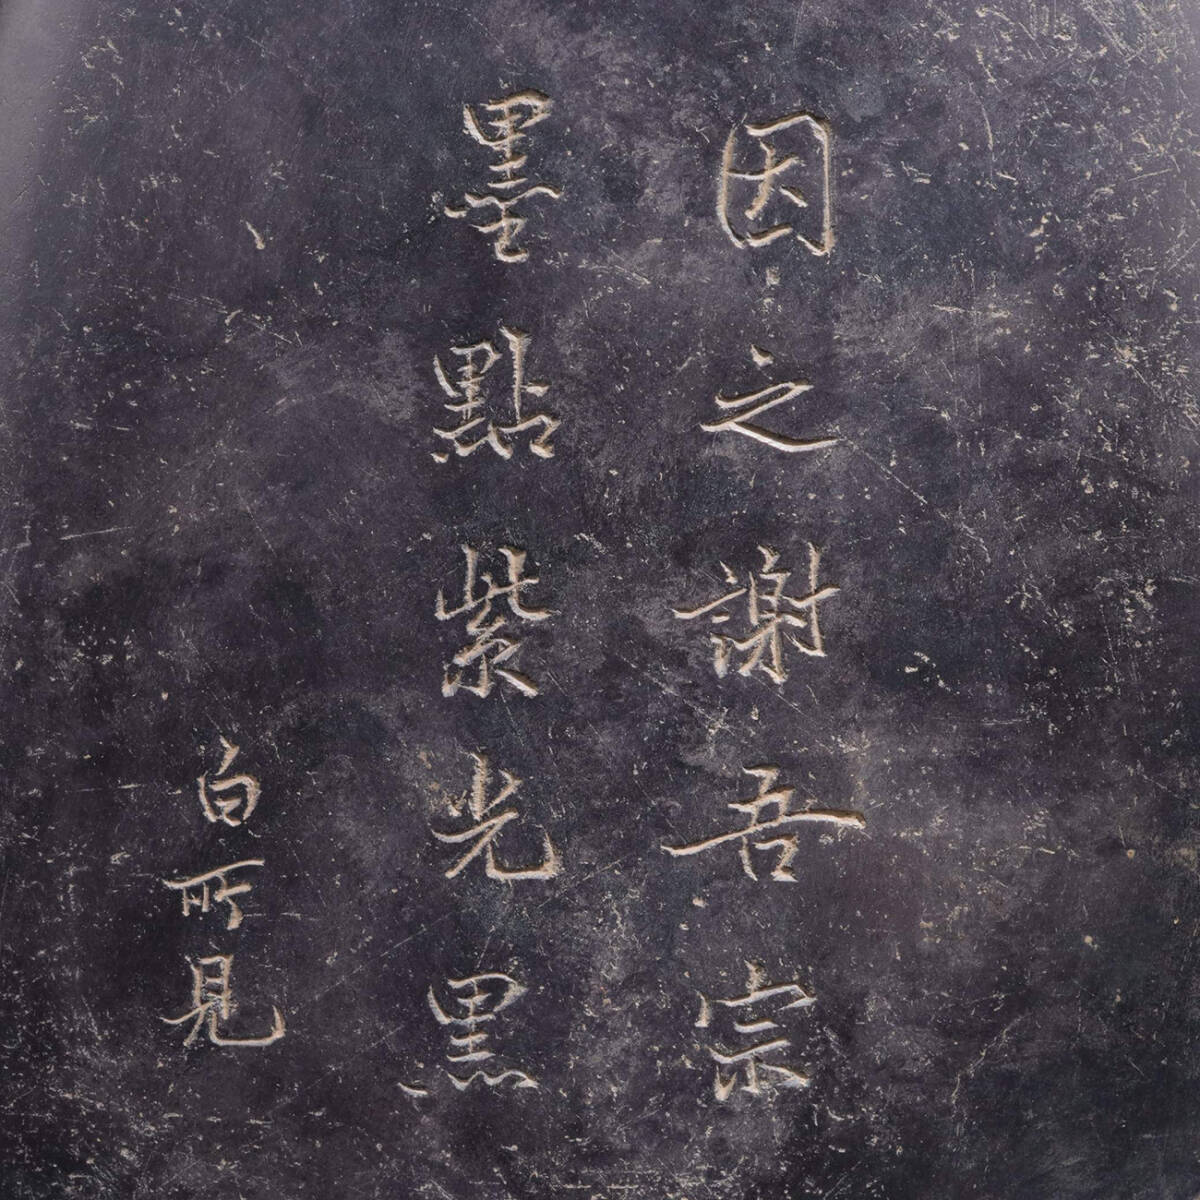 因之謝吾宗
墨點紫光黑
白所見